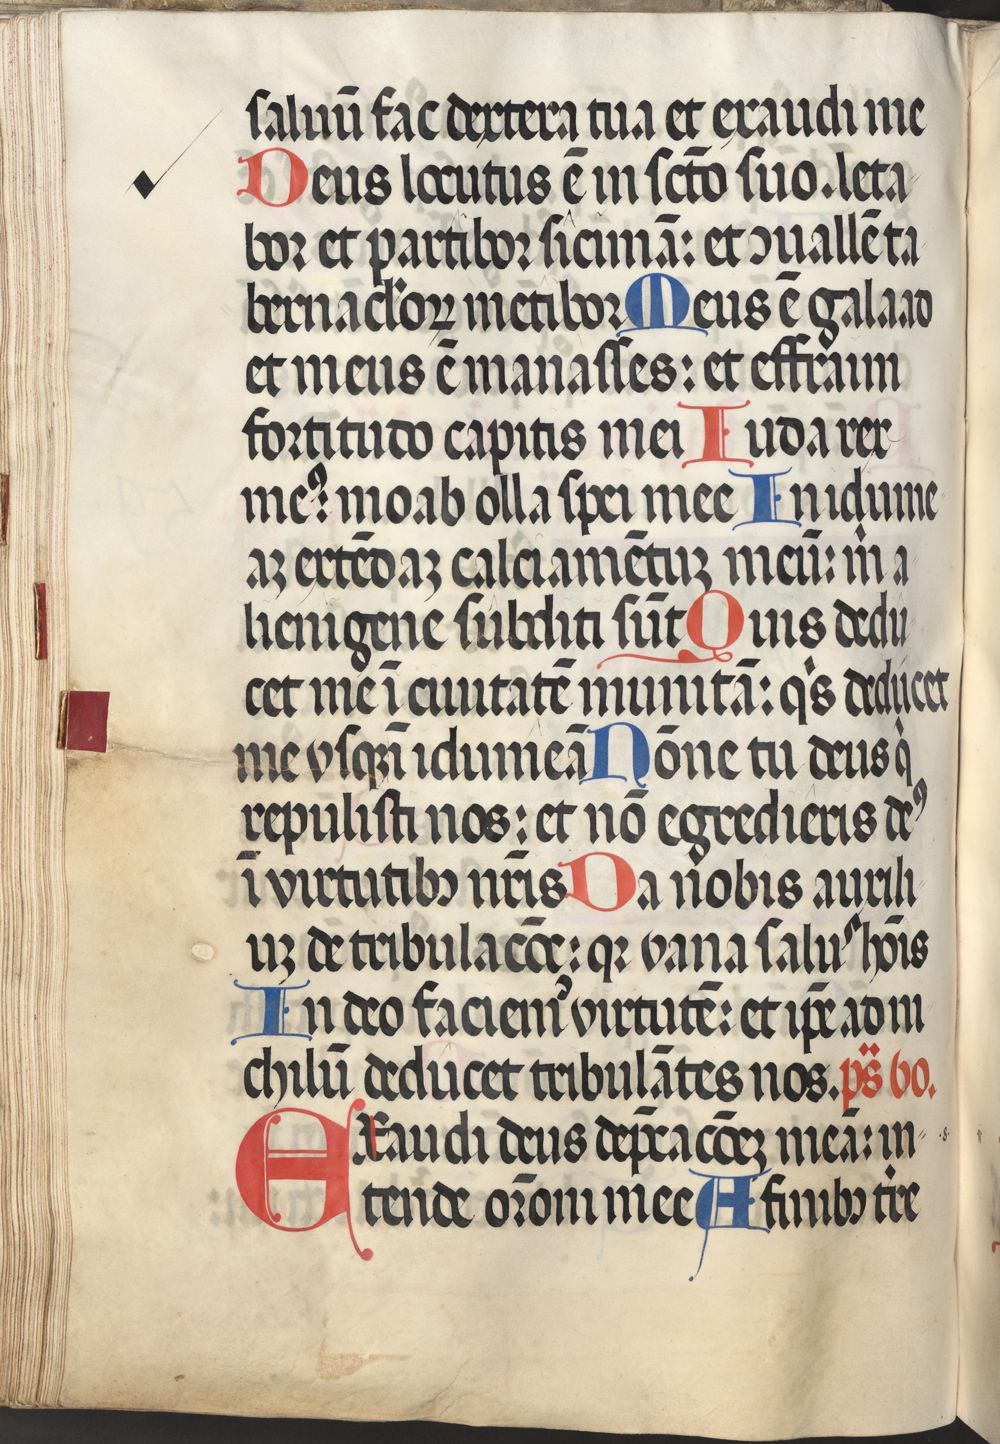 saluū fac dextera tua et exaudi me
Deus locutus ē in scťo suo. leta
bor et partibor sicimā: et ↄuallē ta
bernaclʼoꝝ metibor Meus ē galaad
et meus ē manasses: et effraim
fortitudo capitis mei Iuda rex
meꝰ: moab olla spei mee In idume
aꝫ extēdaꝫ calciamētuꝫ meū: m̄ a
lienigene subditi sūt Quis dedu
cet me ī ciuitatē munitā: qͥs deducet
me vsqꝫ ī idumeā Nōne tu deus qͥ
repulisti nos: et nō egredieris deꝰ
ī virtutibꝫ nr̄is Da nobis auxili
uꝫ de tribulacōe: qꝛ vana salus hōis
In deo faciemꝰ virtutē: et ip̄e ad ni
chilū deducet tribulātes nos. ps̄ 60.
Exaudi deus dep̄cacōeꝫ meā: in
tende or̄oni mee A finibꝫ t̄re